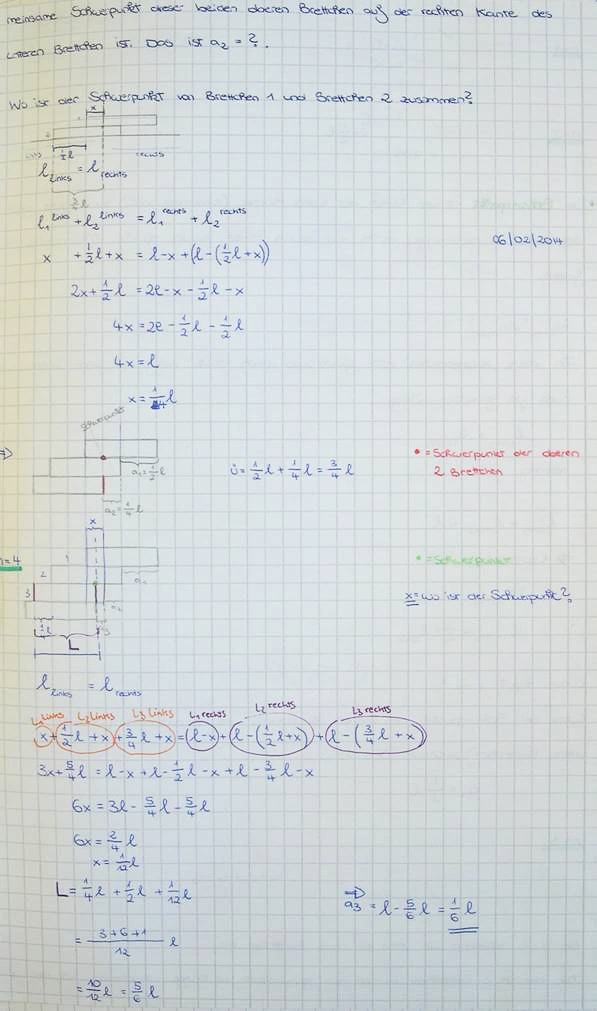 meinsame Schwerpunkt dieser beiden oberen Brettchen auf der rechten Kante des
unteren Brettchen ist. Das ist a₂ = ?.
Wo ist der Schwerpunkt von Brettchen 1 und Brettchen 2 zusammen?
x
1
2
½l
rechts
l links = l rechts
3/2 l
l₁ links + l₂ links = l₁ rechts + l₂ rechts
06/02/2014
x + ½l + x = l - x + (l - (½l + x))
2x + ½l = 2l - x - ½l - x
4x = 2l - ½l - ½l
4x = l
x = ¼l
Schwerpunkt
⇒
a₁ = ½l
ü = ½l + ¼l = ¾l
• = Schwerpunkt der oberen
2 Brettchen
a₂ = ¼l
x
n = 4
1
• = Schwerpunkt
2
a₁
3
x = wo ist der Schwerpunkt?
a₂
¼l
L
l links = l rechts
L₁ links L₂ links L₃ links L₁ rechts L₂ rechts L₃ rechts
x + ½l + x + ¾l + x = l - x + l - (½l + x) + l - (¾l + x)
3x + 5/4 l = l - x + l - ½l - x + l - ¾l - x
6x = 3l - 5/4 l - 5/4 l
6x = 2/4 l
x = 1/12 l
L = ¼l + ½l + 1/12 l
⇒ a₃ = l - 5/6 l = 1/6 l
= (3+6+1)/12 l
= 10/12 l = 5/6 l